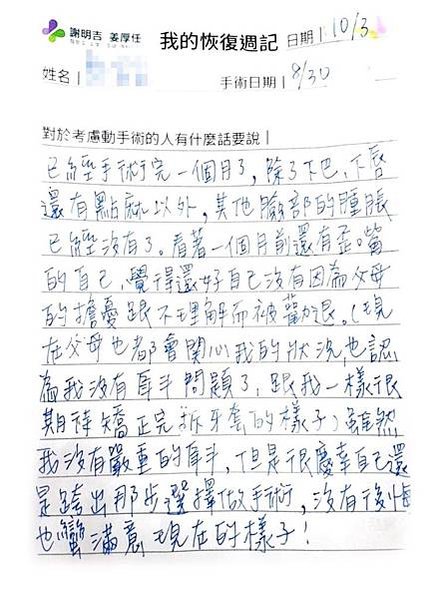 謝明吉 姜厚任
我的恢復週記 日期| 10/3
姓名|
手術日期| 8/30
對於考慮動手術的人有什麼話要說|
已經手術完一個月了，除了下巴、下唇
還有點麻以外，其他臉部的腫脹
已經沒有了。看著一個月前還有歪嘴
的自己，覺得還好自己沒有因為父母
的擔憂跟不理解而被勸退。(現
在父母也都會關心我的狀況，也認
為我沒有戽斗問題了，跟我一樣很
期待矯正完拆牙套的樣子）雖然
我沒有嚴重的戽斗，但是很慶幸自己還
是跨出那步選擇做手術，沒有後悔
也蠻滿意現在的樣子！